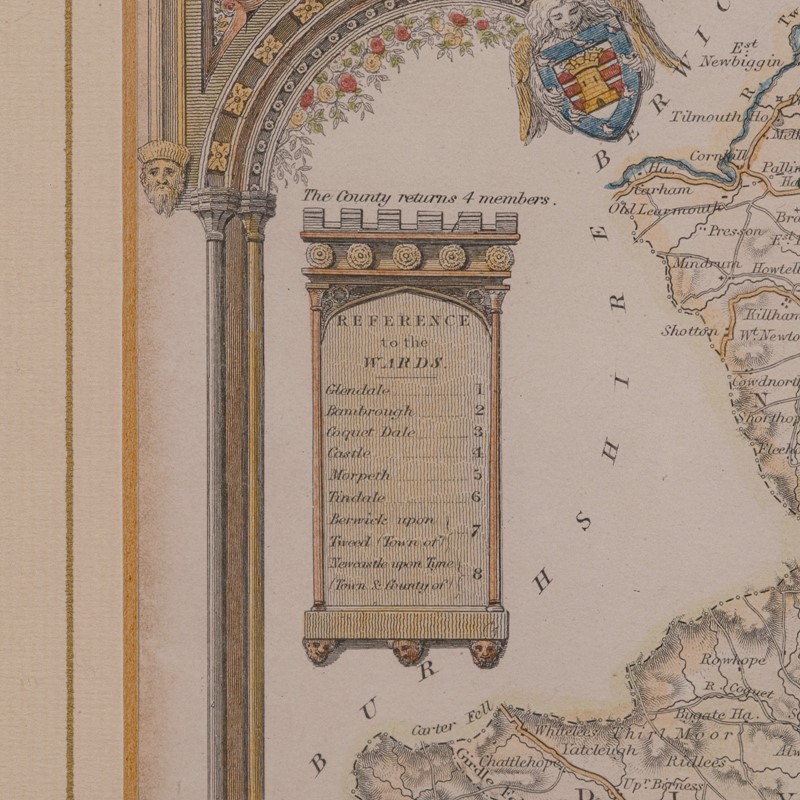 The County returns 4 members.
REFERENCE
to the
WARDS.
Glendale 1
Bambrough 2
Coquet Dale 3
Castle 4
Morpeth 5
Tindale 6
Berwick upon
Tweed (Town of) 7
Newcastle upon Tyne
(Town & County of) 8
BERWICK
SHIRE
BURGHSHIRE
Est
Newbiggin
Tilmouth Ho
Cornhill
Ha.
Carham
Old Learmouth
Presson
Mindrum
Howtell
Killham
Shotton
Wt. Newto
Cowdnort
Shortho
Fleeh
Rowhope
R. Coquet
Bugate Ha.
Carter Fell
Whitelees
Thirl Moor
Yatcleugh
Chattlehope
Ridlees
Upr. Byrness
Girdle